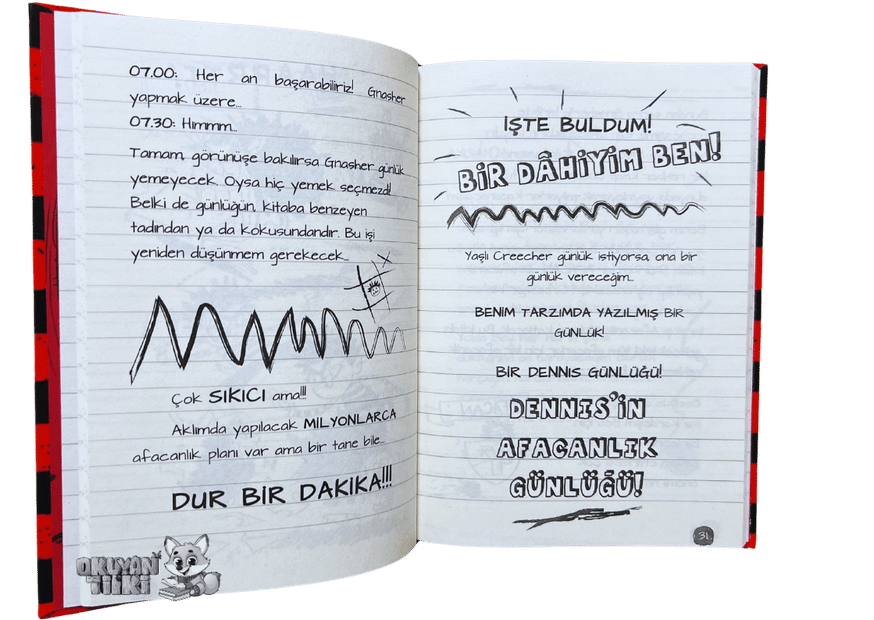 07.00: Her an başarabiliriz! Gnasher
yapmak üzere...
07.30: Hımmm...
Tamam, görünüşe bakılırsa Gnasher günlük
yemeyecek. Oysa hiç yemek seçmezdi!
Belki de günlüğün, kitaba benzeyen
tadından ya da kokusundandır. Bu işi
yeniden düşünmem gerekecek...
Çok SIKICI ama!!!
Aklımda yapılacak MİLYONLARCA
afacanlık planı var ama bir tane bile...
DUR BİR DAKİKA!!!
OKUYAN
TİLKİ
İŞTE BULDUM!
BİR DÂHİYİM BEN!
Yaşlı Creecher günlük istiyorsa, ona bir
günlük vereceğim...
BENİM TARZIMDA YAZILMIŞ BİR
GÜNLÜK!
BİR DENNIS GÜNLÜĞÜ!
DENNIS'İN
AFACANLIK
GÜNLÜĞÜ!
31